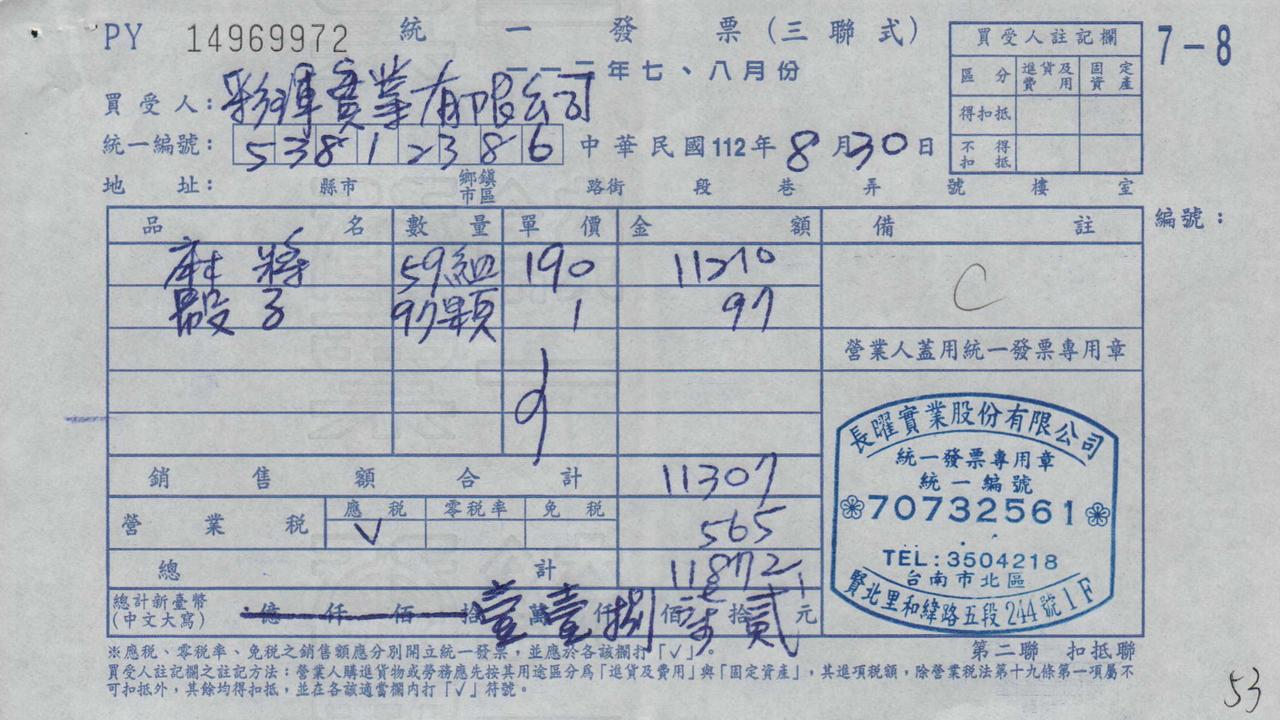 PY 14969972 統一發票(三聯式)
一一二年七、八月份
7-8
買受人註記欄
區分 進貨及費用 固定資產
得扣抵
不得扣抵
買受人:彩琿實業有限公司
統一編號:53812386 中華民國112年8月30日
地址: 縣市 鄉鎮市區 路街 段 巷 弄 號 樓 室
品名 數量 單價 金額 備註 編號:
麻將 59組 190 11210
C
骰子 97顆 1 97
營業人蓋用統一發票專用章
銷售額合計 11307
營業稅 應稅 零稅率 免稅
V 565
總計 11872
總計新臺幣(中文大寫) 億 仟 佰 拾壹萬壹仟捌佰柒拾貳元
長曜實業股份有限公司
統一發票專用章
統一編號
70732561
TEL:3504218
台南市北區
賢北里和緯路五段244號1F
※應稅、零稅率、免稅之銷售額應分別開立統一發票,並應於各該欄打「√」。
第二聯 扣抵聯
買受人註記欄之註記方法:營業人購進貨物或勞務應先按其用途區分為「進貨及費用」與「固定資產」,其進項稅額,除營業稅法第十九條第一項屬不
可扣抵外,其餘均得扣抵,並在各該適當欄內打「√」符號。
53